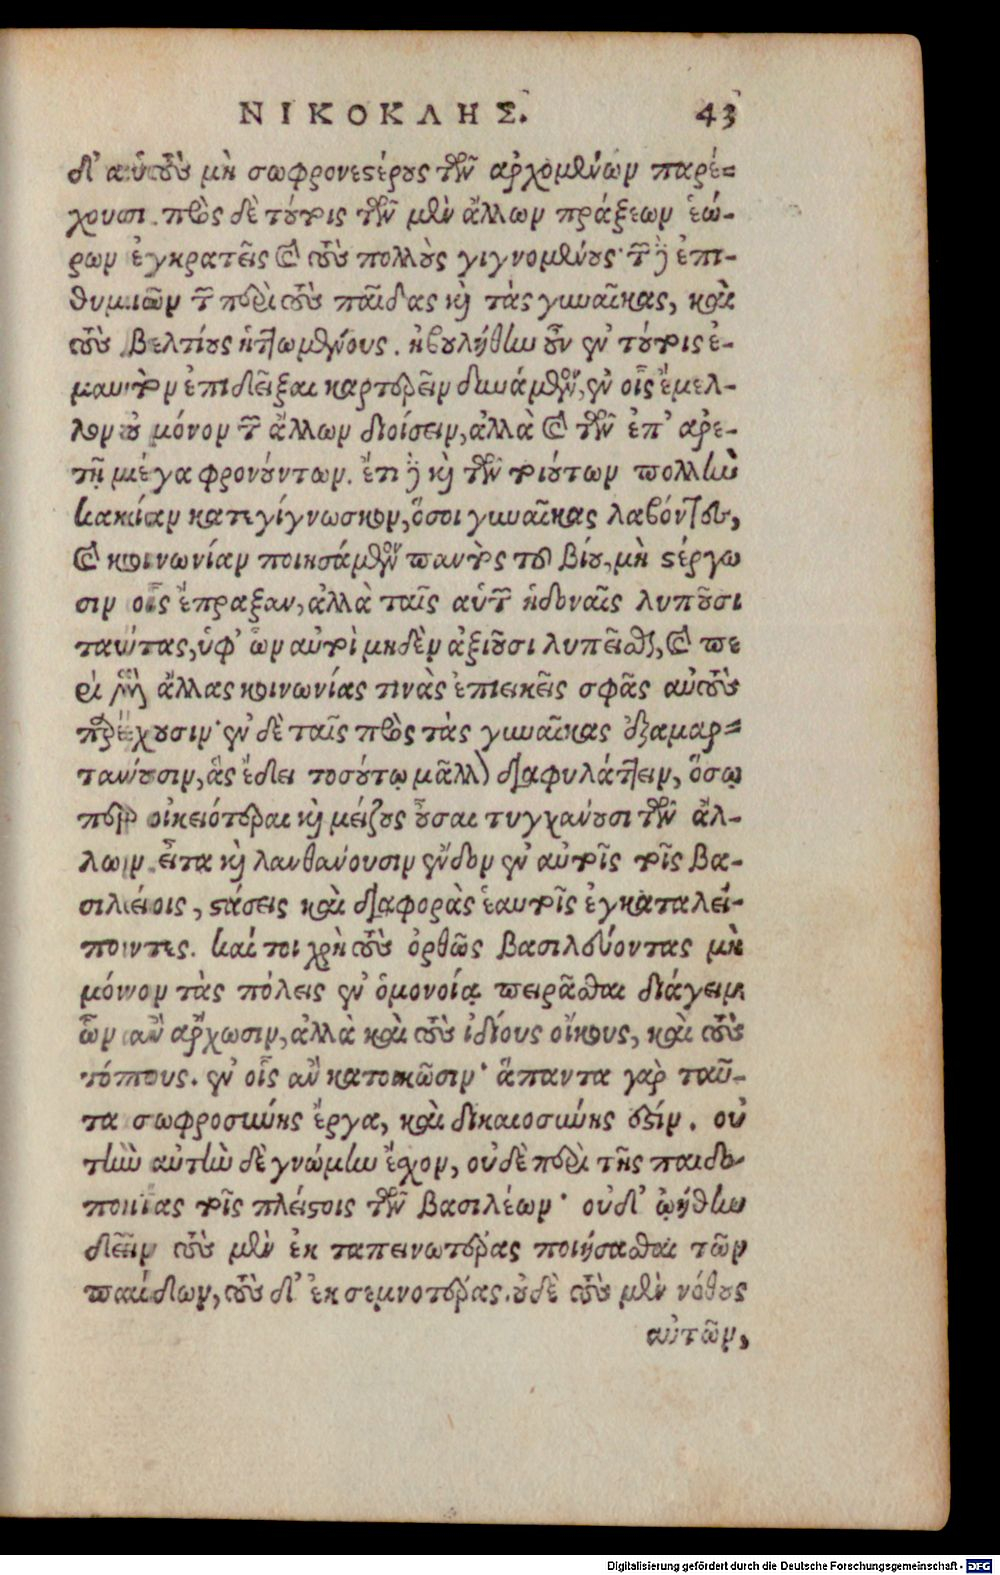 ΝΙΚΟΚΛΗΣ. 43
δ' αὑτοὺς μὴ σωφρονεστέρους τῶν ἀρχομένων παρέ=
χουσι. πρὸς δὲ τούτοις τῶν μὲν ἄλλων πράξεων ἑώ-
ρων ἐγκρατεῖς καὶ τοὺς πολλοὺς γιγνομένους· τῶν δ' ἐπι-
θυμιῶν τῶν περὶ τοὺς παῖδας καὶ τὰς γυναῖκας, καὶ
τοὺς βελτίους ἡττωμένους. ἠβουλήθην οὖν ἐν τούτοις ἐ-
μαυτὸν ἐπιδεῖξαι καρτερεῖν δυνάμενον, ἐν οἷς ἔμελ-
λον οὐ μόνον τῶν ἄλλων διοίσειν, ἀλλὰ καὶ τῶν ἐπ' ἀρε-
τῇ μέγα φρονούντων. ἔτι δὲ καὶ τῶν τοιούτων πολλὴν
κακίαν κατεγίγνωσκον, ὅσοι γυναῖκας λαβόντες,
καὶ κοινωνίαν ποιησάμενοι παντὸς τοῦ βίου, μὴ στέργω
σιν οἷς ἔπραξαν, ἀλλὰ ταῖς αὑτῶν ἡδοναῖς λυποῦσι
ταύτας, ὑφ' ὧν αὐτοὶ μηδὲν ἀξιοῦσι λυπεῖσθαι, καὶ πε
ρὶ μὲν ἄλλας κοινωνίας τινὰς ἐπιεικεῖς σφᾶς αὐτοὺς
παρέχουσιν· ἐν δὲ ταῖς πρὸς τὰς γυναῖκας ἐξαμαρ=
τάνουσιν, ἃς ἔδει τοσούτῳ μᾶλλον διαφυλάττειν, ὅσῳ
περ οἰκειότεραι καὶ μείζους οὖσαι τυγχάνουσι τῶν ἄλ-
λων. εἶτα καὶ λανθάνουσιν ἔνδον ἐν αὐτοῖς τοῖς βα-
σιλείοις, στάσεις καὶ διαφορὰς ἑαυτοῖς ἐγκαταλεί-
ποντες. καί τοι χρὴ τοὺς ὀρθῶς βασιλεύοντας μὴ
μόνον τὰς πόλεις ἐν ὁμονοίᾳ πειρᾶσθαι διάγειν
ὧν ἂν ἄρχωσιν, ἀλλὰ καὶ τοὺς ἰδίους οἴκους, καὶ τοὺς
τόπους. ἐν οἷς ἂν κατοικῶσιν· ἅπαντα γὰρ ταῦ-
τα σωφροσύνης ἔργα, καὶ δικαιοσύνης ἐστίν. οὐ
τὴν αὐτὴν δὲ γνώμην ἔχον, οὐδὲ περὶ τῆς παιδο-
ποιίας τοῖς πλείστοις τῶν βασιλέων· οὐδ' ᾠήθην
δεῖν τοὺς μὲν ἐκ ταπεινωτέρας ποιήσασθαι τῶν
παίδων, τοὺς δ' ἐκ σεμνοτέρας. οὐδὲ τοὺς μὲν νόθους
αὐτῶν,
Digitalisierung gefördert durch die Deutsche Forschungsgemeinschaft - DFG